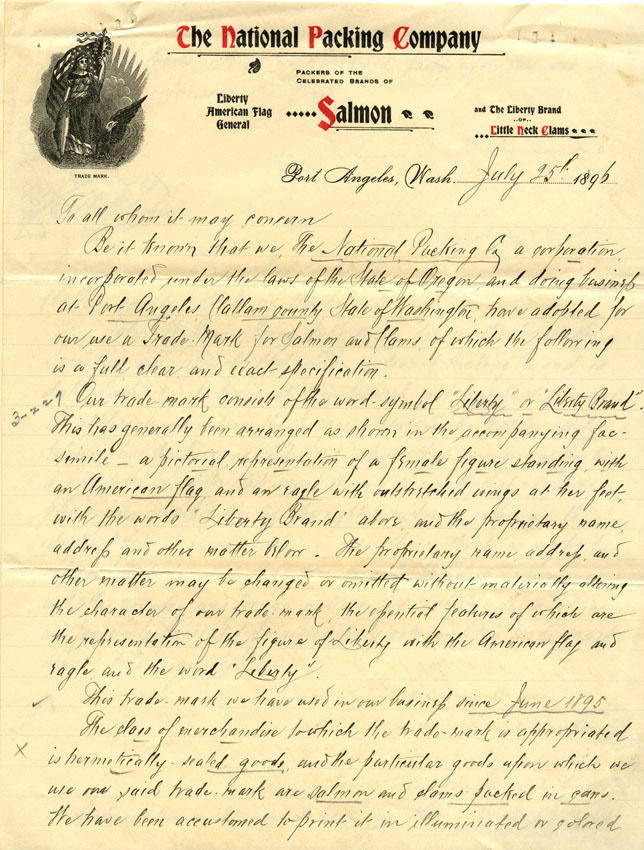 The National Packing Company
PACKERS OF THE
CELEBRATED BRANDS OF
Liberty
American Flag
General
Salmon
and The Liberty Brand
..OF..
Little Neck Clams
TRADE MARK.
Port Angeles, Wash. July 25th 1896
To all whom it may concern
Be it known that we, The National Packing Co a corporation,
incorporated under the laws of the State of Oregon and doing business
at Port Angeles Clallam county State of Washington, have adopted for
our use a Trade-Mark for Salmon and Clams of which the following
is a full clear and exact specification.
3-229
Our trade-mark consists of the word-symbol "Liberty" or "Liberty Brand".
This has generally been arranged as shown in the accompanying fac-
simile - a pictorial representation of a female figure standing with
an American flag and an eagle with outstretched wings at her feet,
with the words "Liberty Brand" above, and the proprietary name,
address and other matter below. The proprietary name address, and
other matter may be changed or omitted without materially altering
the character of our trade-mark, the essential features of which are
the representation of the figure of Liberty with the American flag and
eagle and the word "Liberty".
This trade-mark we have used in our business since June 1895
The class of merchandise to which the trade-mark is appropriated
x
is hermetically-sealed goods, and the particular goods upon which we
use our said trade-mark are salmon and clams packed in cans.
We have been accustomed to print it in illuminated or colored